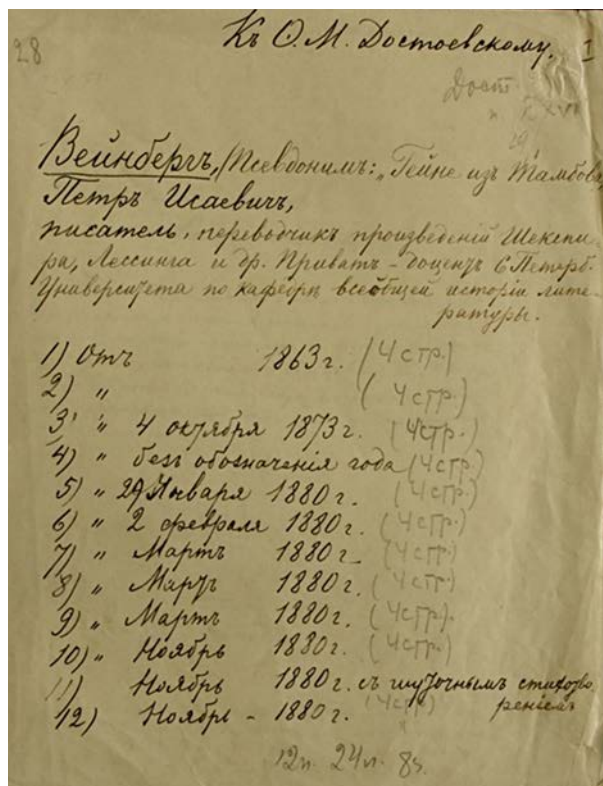 28
Къ Ѳ. М. Достоевскому. I
Дост.
Вейнбергъ, (Псевдонимъ: „Гейне изъ Тамбова,
Петръ Исаевичъ,
писатель, переводчикъ произведеній Шекспи-
ра, Лессинга и др. Приватъ-доцентъ С Петерб.
Университета по кафедрѣ всеобщей исторіи лите-
ратуры.
1) Отъ 1863 г. (4 стр.)
2) " (4 стр.)
3) " 4 октября 1873 г. (4 стр.)
4) " безъ обозначенія года (4 стр.)
5) " 29 Января 1880 г. (4 стр.)
6) " 2 февраля 1880 г. (4 стр.)
7) " Мартъ 1880 г. (4 стр.)
8) " Мартъ 1880 г. (4 стр.)
9) " Мартъ 1880 г. (4 стр.)
10) " Ноябрь 1880 г. (4 стр.)
11) Ноябрь 1880 г. съ шуточнымъ стихотво
реніемъ
12) Ноябрь - 1880 г. (4 стр.)
12 п. 24 л.